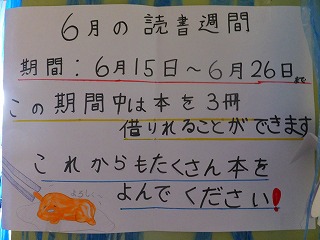 6月の読書週間
期間:6月15日～6月26日まで
この期間中は本を3冊
借りれることができます
これからもたくさん本を
よんでください!